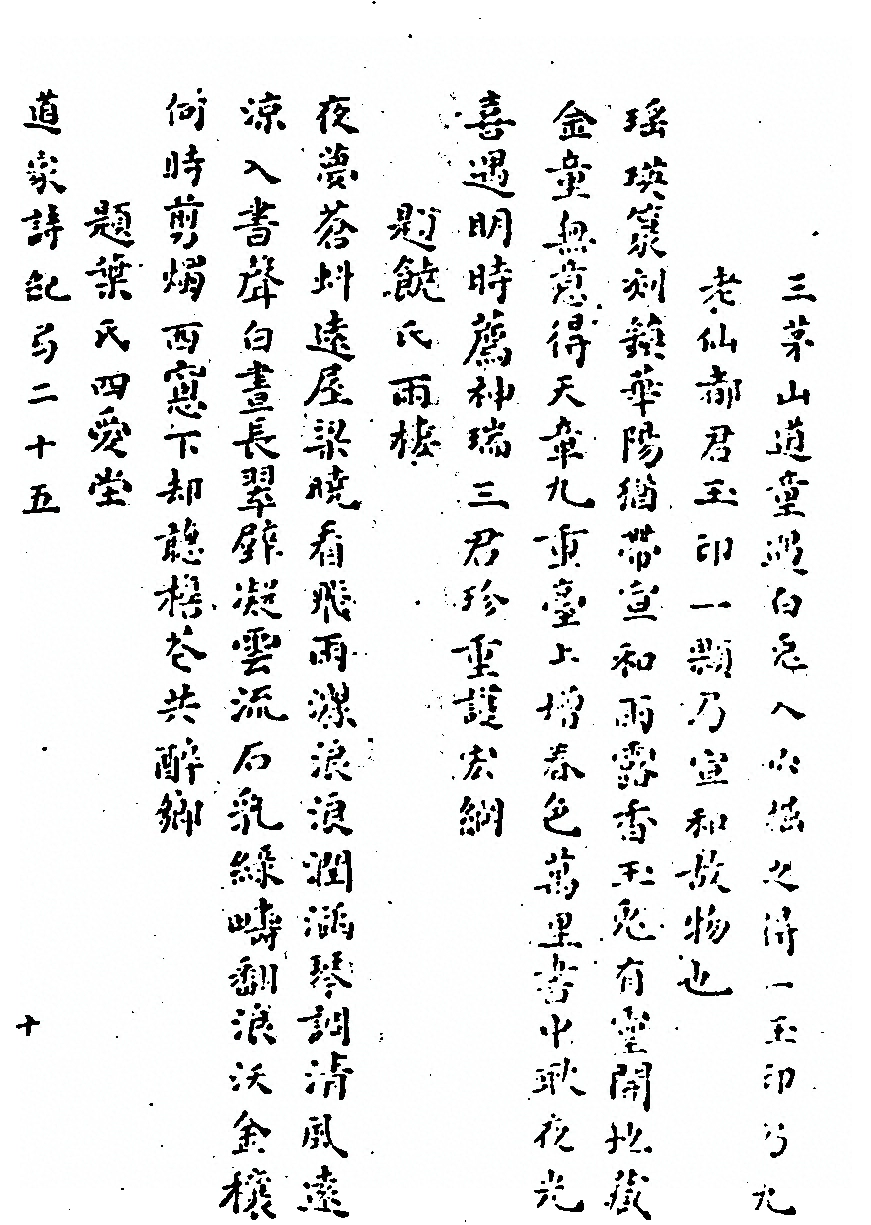 三茅山道童遇白兎入穴掘之得一玉印乃九
老仙都君玉印一顆乃宣和故物也
瑶瑛篆刻鎮華陽猶帶宣和雨露香玉兎有靈開地藏
金童無意得天章九重臺上增春色萬里書中耿夜光
喜遇明時薦神瑞三君珍重護宏綱
題饒氏雨樓
夜夢蒼虯遶屋梁曉看飛雨濕浪浪潤涵琴調清風遠
凉入書聲白晝長翠壁凝雲流石乳綠疇翻浪沃金穰
何時剪燭西窻下却聽檐花共醉鄉
題葉氏四愛堂
道家詩紀卷二十五
十